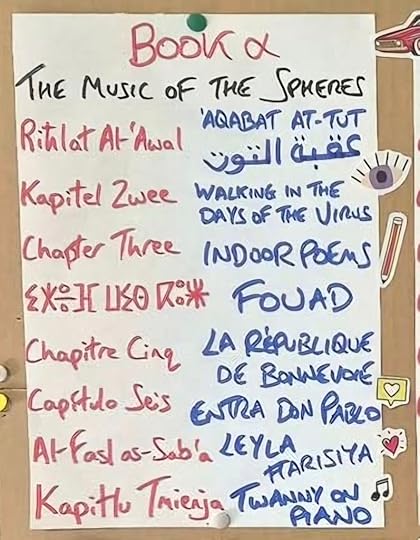 BOOK α
THE MUSIC OF THE SPHERES
Rihlat Al-'Awal
'AQABAT AT-TUT
عقبة التوت
Kapitel Zwee
WALKING IN THE
DAYS OF THE VIRUS
Chapter Three
INDOOR POEMS
FOUAD
Chapitre Cinq
LA RÉPUBLIQUE
DE BONNEVOIE
Capítulo Seis
ENTRA DON PABLO
Al-Fasl as-Sab'a
LEYLA
HARISIYA
Kapitlu Tmienja
TWANNY ON
PIANO